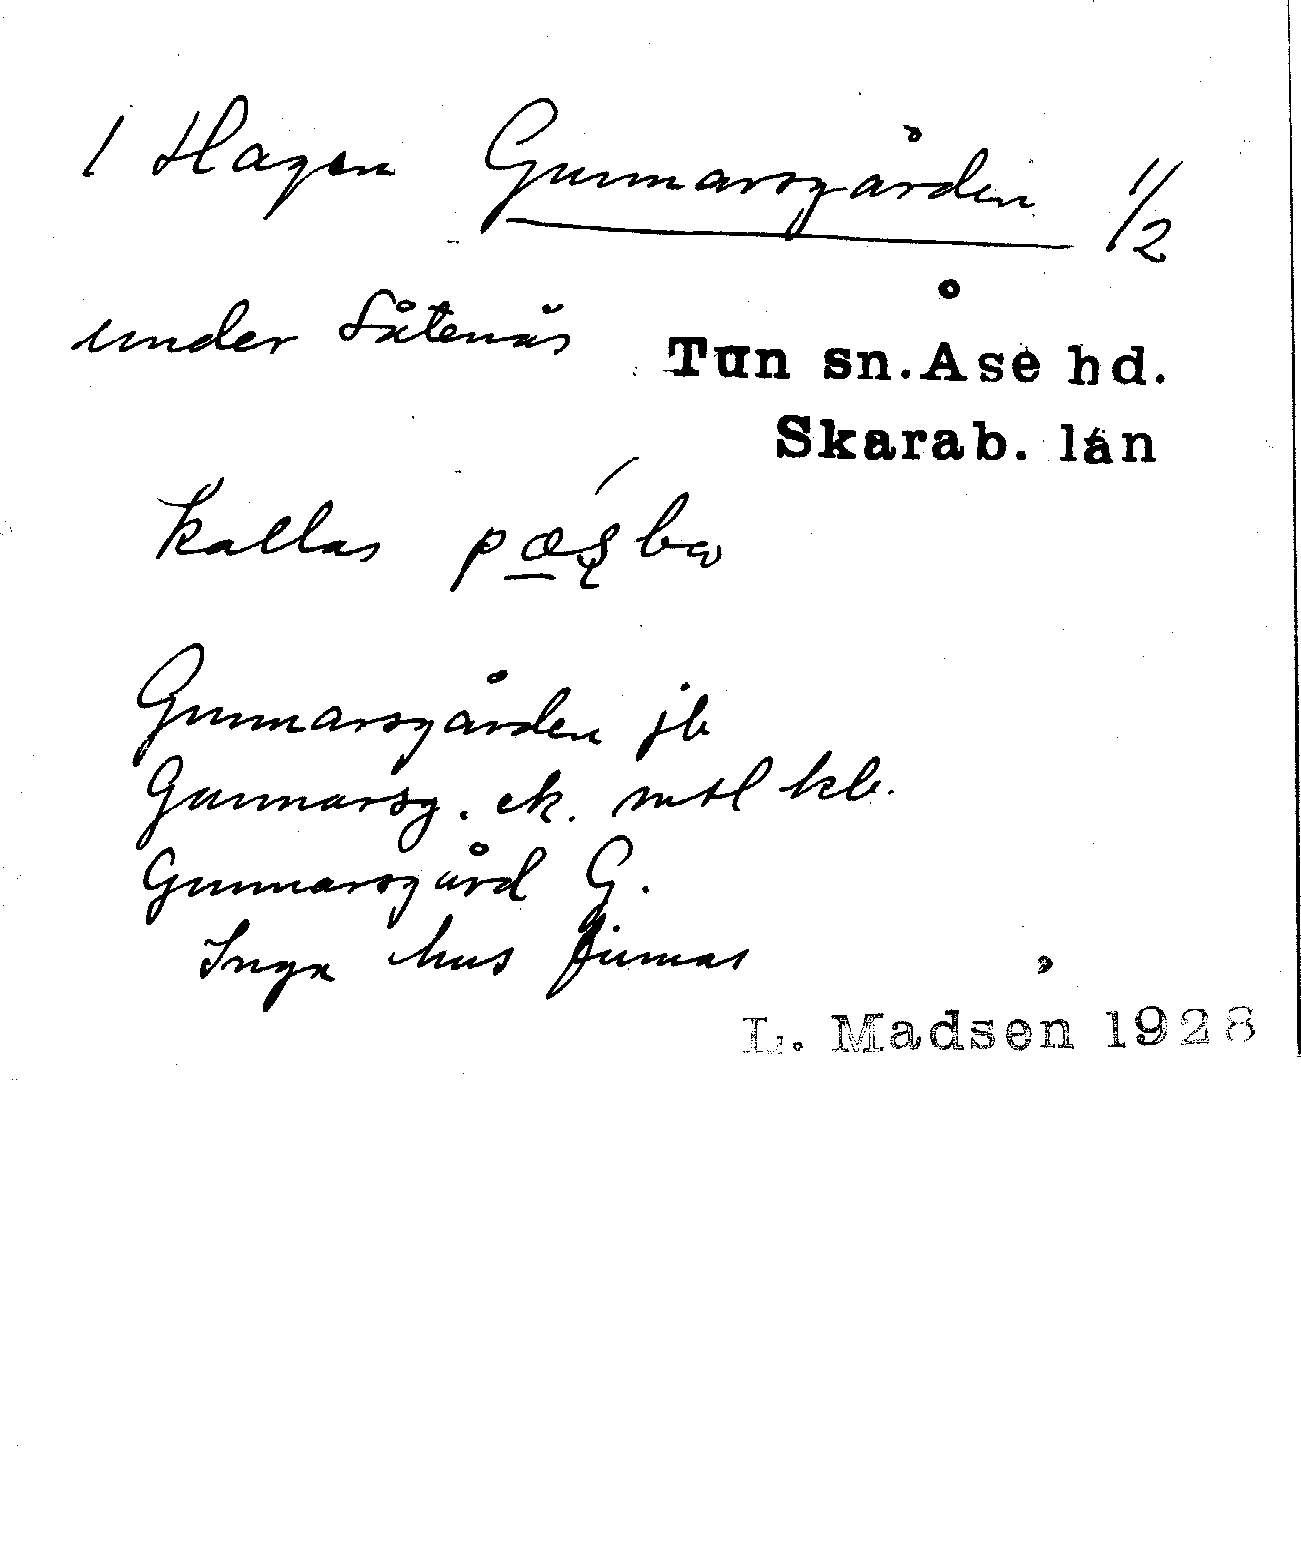 1 Hagen Gunnarsgården 1/2
under Såtenäs
Tun sn. Åse hd.
Skarab. län
kallas
Gunnarsgården jb
Gunnarsg. ek. mtl kb.
Gunnarsgård G.
Inga hus finnas
L. Madsen 1928